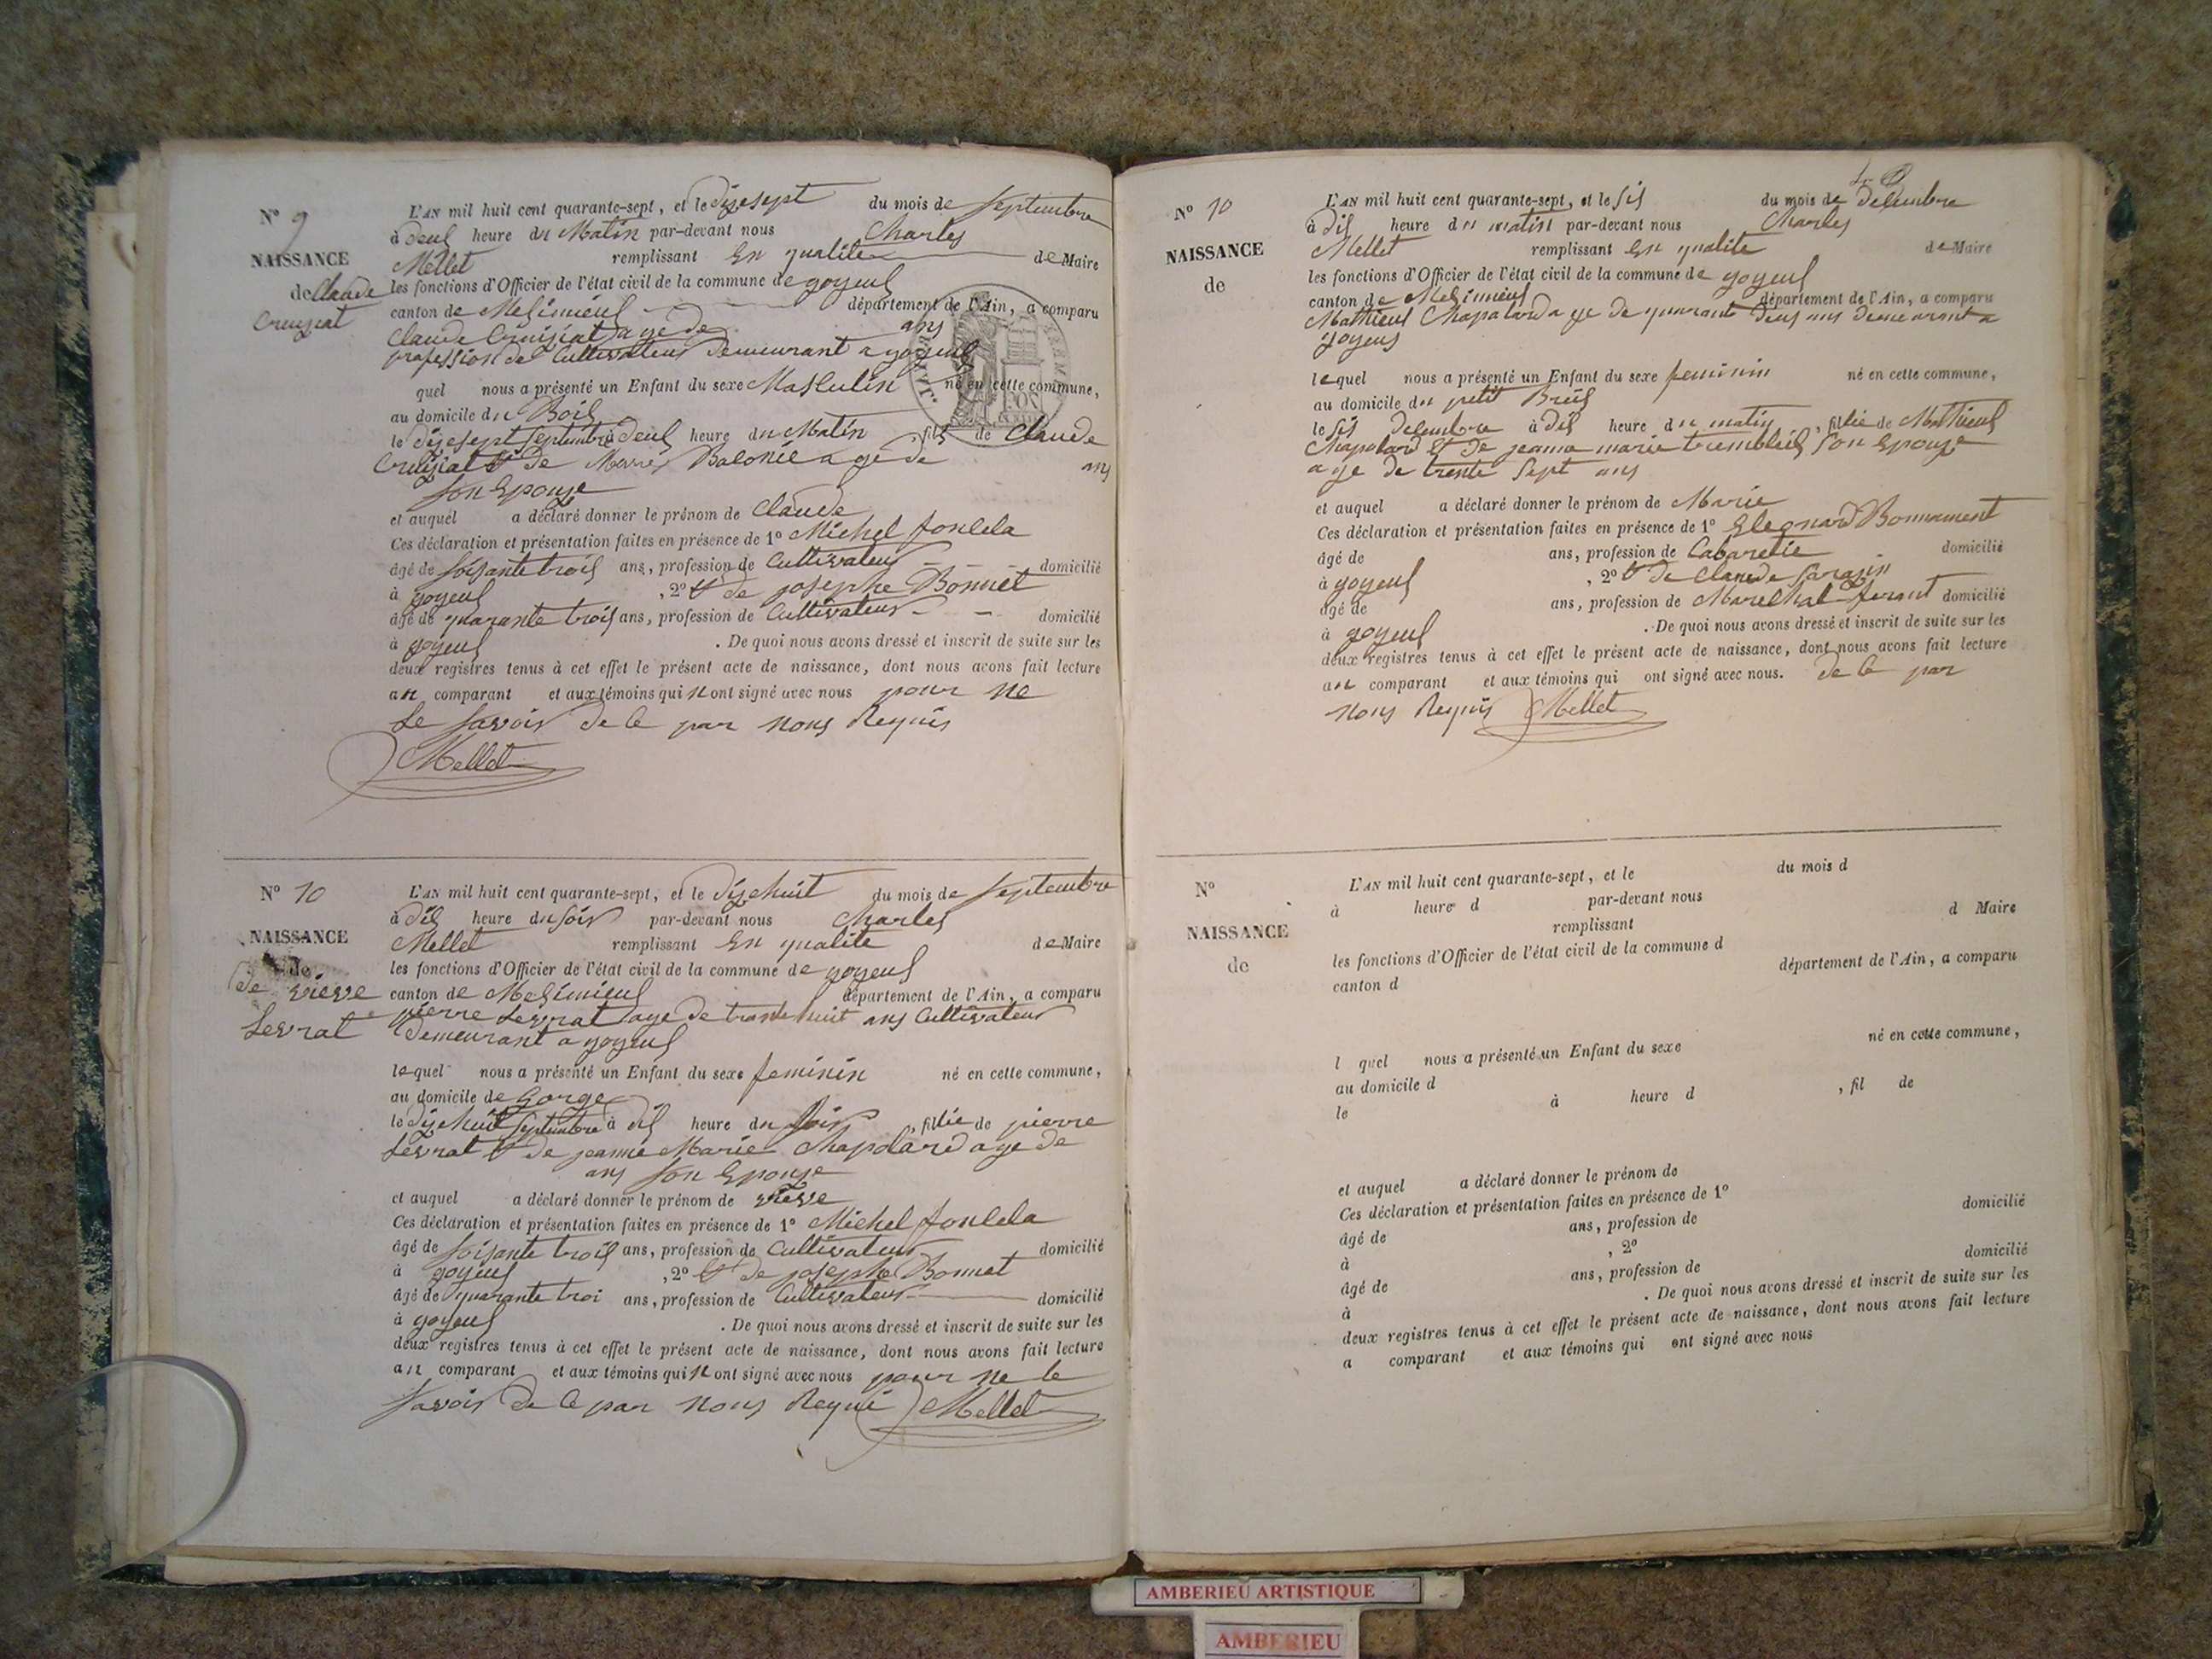 N° 9
NAISSANCE
de Claude
Creuziat
L'AN mil huit cent quarante-sept, et le dizesept du mois de Septembre
à deus heure du Matin par-devant nous Charles
Mellet remplissant En qualite de Maire
les fonctions d'Officier de l'état civil de la commune de joyeus
canton de Mesimieus département de l'Ain, a comparu
Claude Creuiziat age de ans
profession de Cultivateur demeurant a joyeus
quel nous a présenté un Enfant du sexe Masculin né en cette commune,
au domicile du Bois
le dizesept Septembre à deus heure du Matin, fils de Claude
Creuziat et de Marie Balonie age de ans
Son Epouze
et auquel a déclaré donner le prénom de Claude
Ces déclaration et présentation faites en présence de 1° Michel fonlela
âgé de soisante trois ans, profession de Cultivateur domicilié
à joyeus, 2° et de josephe Bonnet
âgé de quarante trois ans, profession de Cultivateur domicilié
à joyeus. De quoi nous avons dressé et inscrit de suite sur les
deux registres tenus à cet effet le présent acte de naissance, dont nous avons fait lecture
au comparant et aux témoins qui n ont signé avec nous pour ne
Le Savoir de ce par nous Requis
Mellet
N° 10
NAISSANCE
de
de vieve
Levrat
L'AN mil huit cent quarante-sept, et le dizehuit du mois de Septembre
à dis heure du Soir par-devant nous Charles
Mellet remplissant En qualite de Maire
les fonctions d'Officier de l'état civil de la commune de joyeus
canton de Mesimieus département de l'Ain, a comparu
pierre Levrat age de trante huit ans Cultivateur
demeurant a joyeus
lequel nous a présenté un Enfant du sexe feminin né en cette commune,
au domicile de Gorge
le dizehuit Septembre à dis heure du Soir, fillie de pierre
Levrat et de jeanne Marie Chapolard age de
ans Son Epouze
et auquel a déclaré donner le prénom de vieve
Ces déclaration et présentation faites en présence de 1° Michel fonlela
âgé de soisante trois ans, profession de Cultivateur domicilié
à joyeus, 2° et de josephe Bonnet
âgé de quarante troi ans, profession de Cultivateur domicilié
à joyeus. De quoi nous avons dressé et inscrit de suite sur les
deux registres tenus à cet effet le présent acte de naissance, dont nous avons fait lecture
au comparant et aux témoins qui n ont signé avec nous pour ne le
Savoir de ce par nous Requi Mellet
N° 10
NAISSANCE
de
L'AN mil huit cent quarante-sept, et le sis du mois de decembre
à dis heure du matin par-devant nous Charles
Mellet remplissant En qualite de Maire
les fonctions d'Officier de l'état civil de la commune de joyeus
canton de Mesimieus département de l'Ain, a comparu
Mathieus Chapolard age de quarant deus ans demeurant a
joyeus
lequel nous a présenté un Enfant du sexe feminin né en cette commune,
au domicile du petit Breus
le sis decembre à dis heure du matin, fillie de Mathieus
Chapolard et de jeanna marie trembleis Son Epouze
age de trente Sept ans
et auquel a déclaré donner le prénom de Marie
Ces déclaration et présentation faites en présence de 1° Eleonard Bonnament
âgé de ans, profession de Cabaretie domicilié
à joyeus, 2° et de Claude Sarazin
âgé de ans, profession de Marechal ferant domicilié
à joyeus. De quoi nous avons dressé et inscrit de suite sur les
deux registres tenus à cet effet le présent acte de naissance, dont nous avons fait lecture
au comparant et aux témoins qui ont signé avec nous. de ce par
nous Requis Mellet
N°
NAISSANCE
de
L'AN mil huit cent quarante-sept, et le du mois d
à heure d par-devant nous
remplissant d Maire
les fonctions d'Officier de l'état civil de la commune d
canton d département de l'Ain, a comparu
l quel nous a présenté un Enfant du sexe né en cette commune,
au domicile d
le à heure d , fil de
et auquel a déclaré donner le prénom de
Ces déclaration et présentation faites en présence de 1°
âgé de ans, profession de domicilié
à , 2°
âgé de ans, profession de domicilié
à . De quoi nous avons dressé et inscrit de suite sur les
deux registres tenus à cet effet le présent acte de naissance, dont nous avons fait lecture
a comparant et aux témoins qui ont signé avec nous
AMBERIEU ARTISTIQUE
AMBERIEU